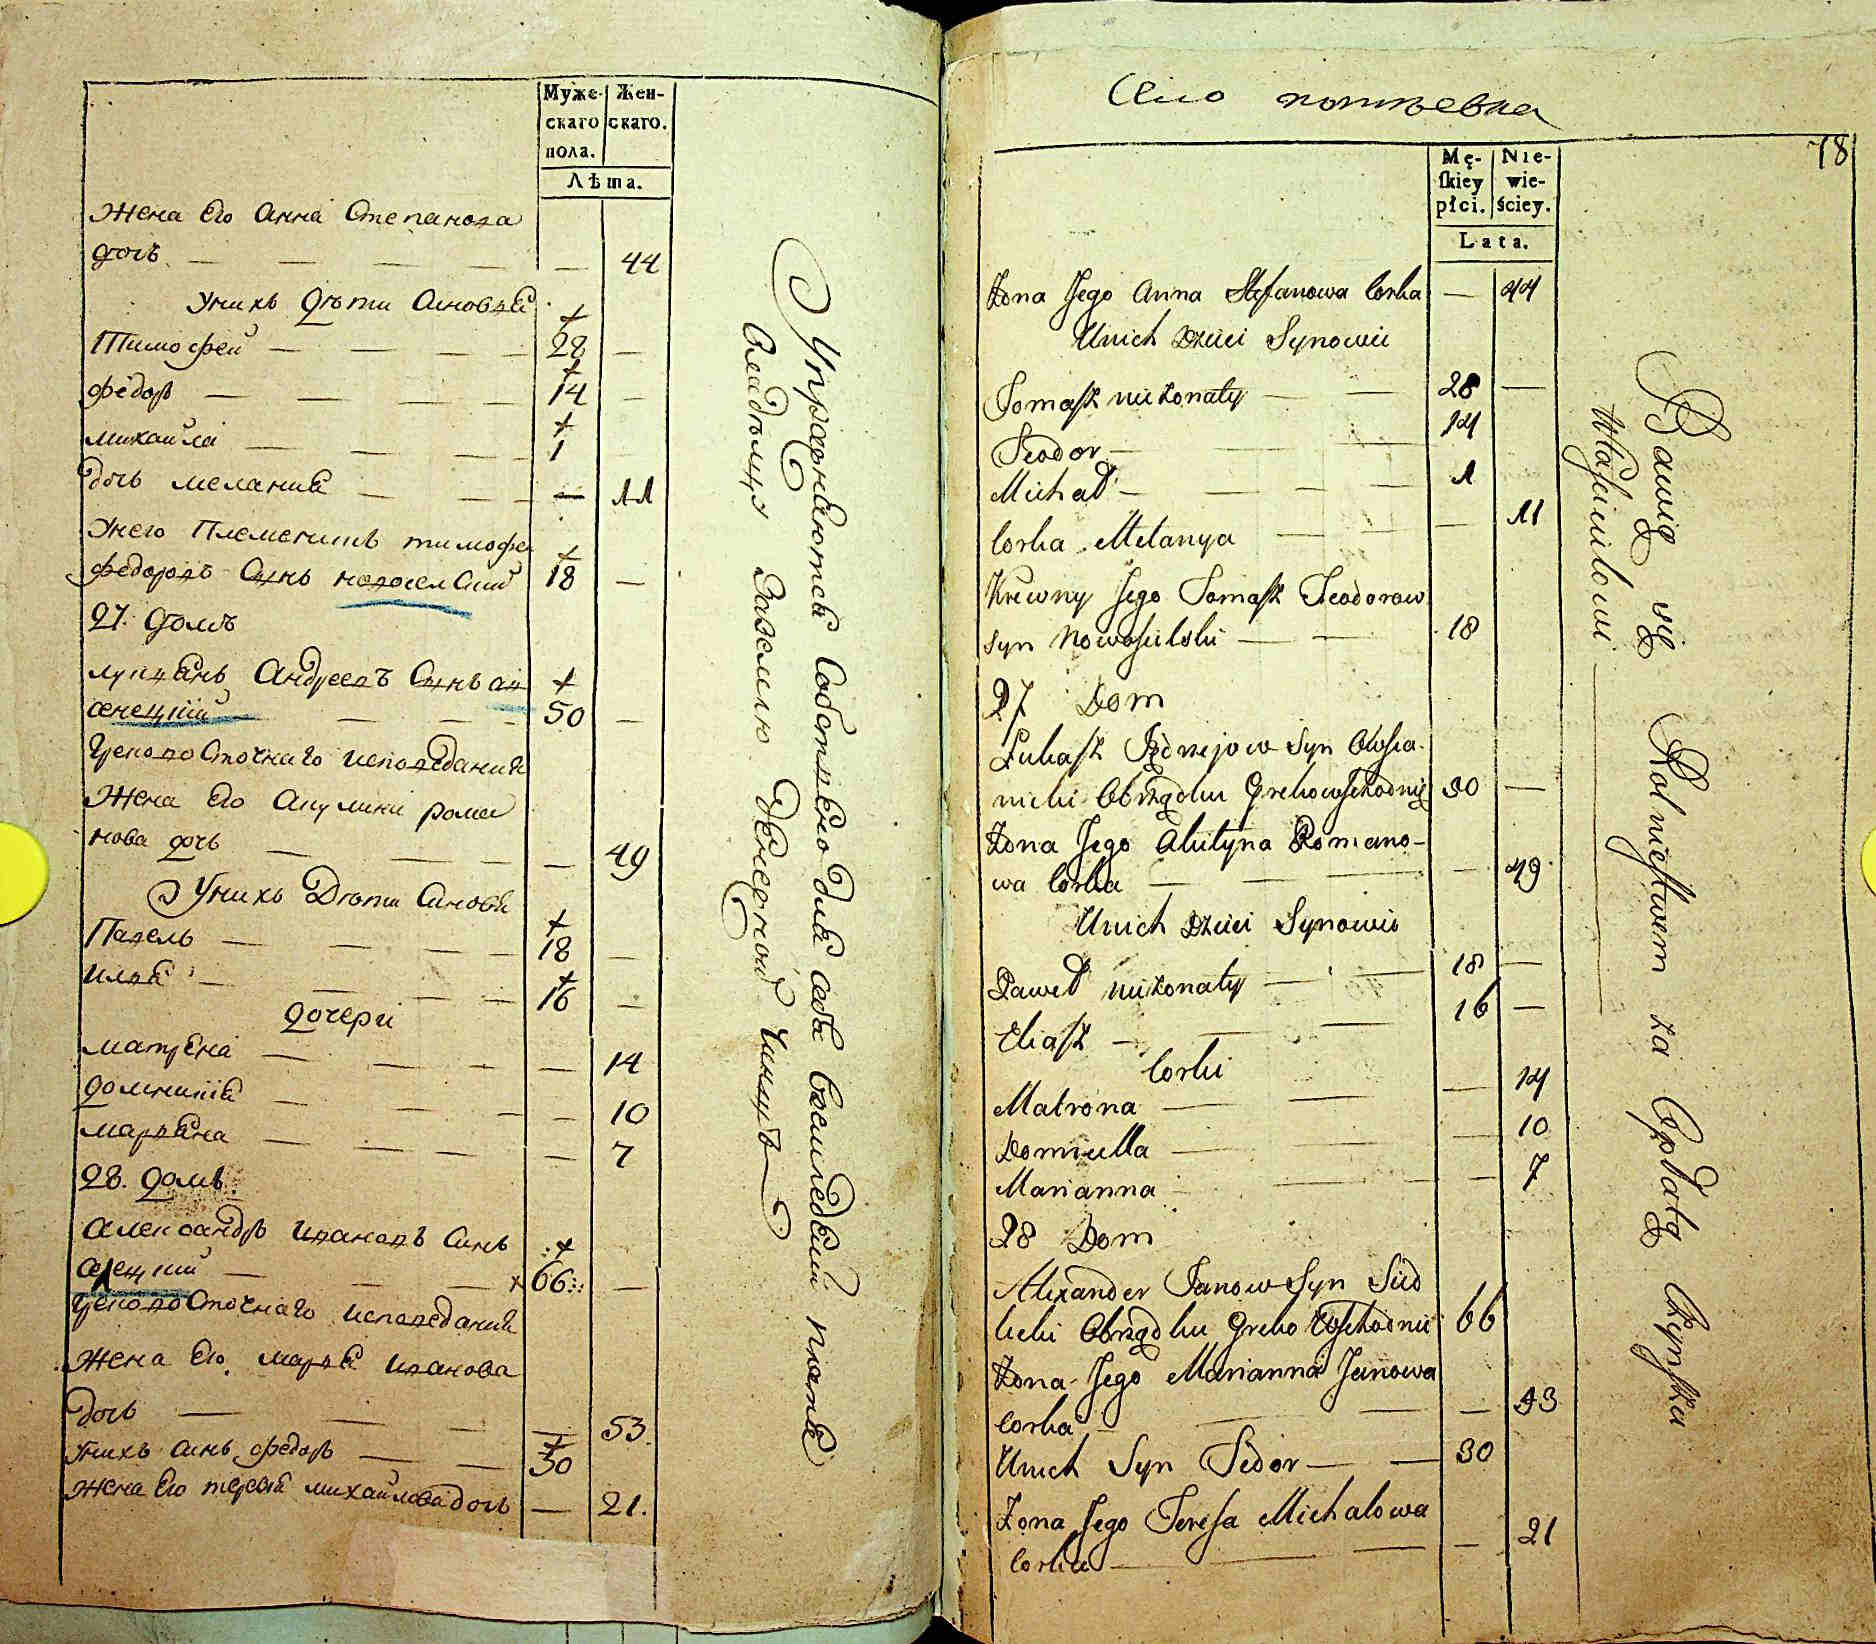 Муже- Жен-
скаго скаго.
пола.
Лѣта.
Жена Его Анна Степанова
дочь — — — — — 44
Унихъ дѣти Синовя
Тимофей — — — — 28 —
Федоръ — — — — 14 —
михайла — — — — 1
дочь мелания — — — — 11
Унего Племеникъ тимофе
Федоровъ Синъ новоселский 18 —
27. домъ
лукянъ Андреевъ Синъ
50 —
Греково Сточнаго исповедания
Жена Его Акулина рома
нова дочь — — — — 49
Унихъ Дѣти Синовя
Павель — — — — 18 —
илья — — — — 16 —
дочери
матрена — — — — 14
домникия — — — — 10
марьяна — — — — 7
28. домъ
Александръ ивановъ Синъ
66 —
Греково Сточнаго исповедания
Жена Его маря иванова
дочь — — — — 53.
Унихъ синъ федоръ — — 30
Жена Его тереса михайлова дочь — 21.
Упражняются Собственно для себя
владелцу за землю денежной чиншъ
Село
78
Mę- Nie-
ſkiey wie-
płci. ściey.
Lata.
Zona Jego Anna Stefanowa Corka — 44
Unich Dzieci Synowie
Tomaſz nieżonaty — — 28 —
Teodor — — 14
Michał — — — — 1
Corka Melanya — — — 11
Krewny Jego Tomaſz Teodorow
Syn Nowosielski — — 18
27 Dom
Łukaſz Jędrzejow Syn
Obrządku Grekowſchodnie 50 —
Zona Jego Akulyna Romano-
wa Corka — — — — 49
Unich Dzieci Synowie
Paweł nieżonaty — — 18 —
Eliaſz — — — 16 —
Corki
Matrona — — — 14
Domicella — — — 10
Marianna — — — 7
28 Dom
Alexander Janow Syn Sied
lecki Obrządku Greko Wſchodnie 66
Zona Jego Marianna Janowa
corka — — — — 53
Unich Syn Fedor — — 30
Zona Jego Tereſa Michałowa
Corka — — — 21
Bawią się Rolnictwem za Opłatą Czynſzu
Właścicielowi —